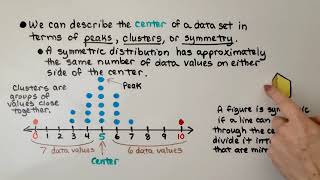 We can describe the center of a data set in
terms of peaks, clusters, or symmetry.
A symmetric distribution has approximately
the same number of data values on either
side of the center.
Clusters are
groups of
values close
together.
Peak
0
5
10
7 data values
6 data values
center
A figure is
if a line can
through the
divide it
that are